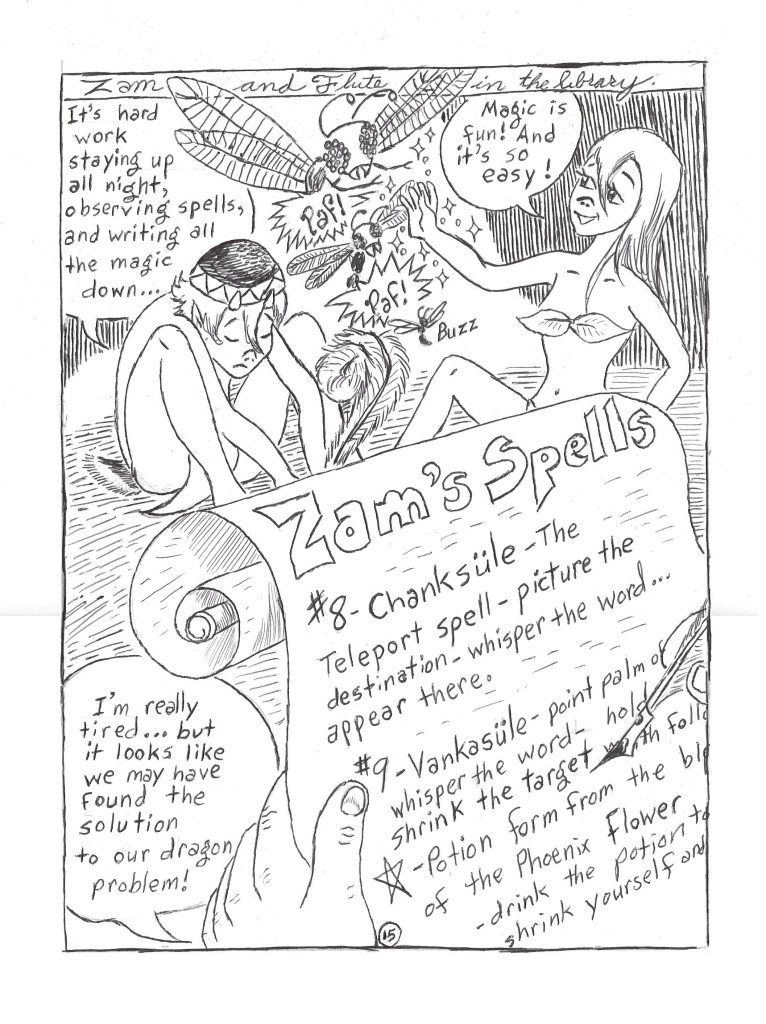 Zam and Flute in the library.
It's hard
work
staying up
all night,
observing spells,
and writing all
the magic
down...
Magic is
fun! And
it's so
easy!
Paf!
Paf!
Buzz
Zam's Spells
#8 - Chanksüle - The
Teleport spell - picture the
destination - whisper the word...
appear there.
#9 - Vankasüle - point palm of
whisper the word - hold
shrink the target
- Potion form from the
of the Phoenix Flower
- drink the potion to
shrink yourself and
I'm really
tired... but
it looks like
we may have
found the
solution
to our dragon
problem!
15